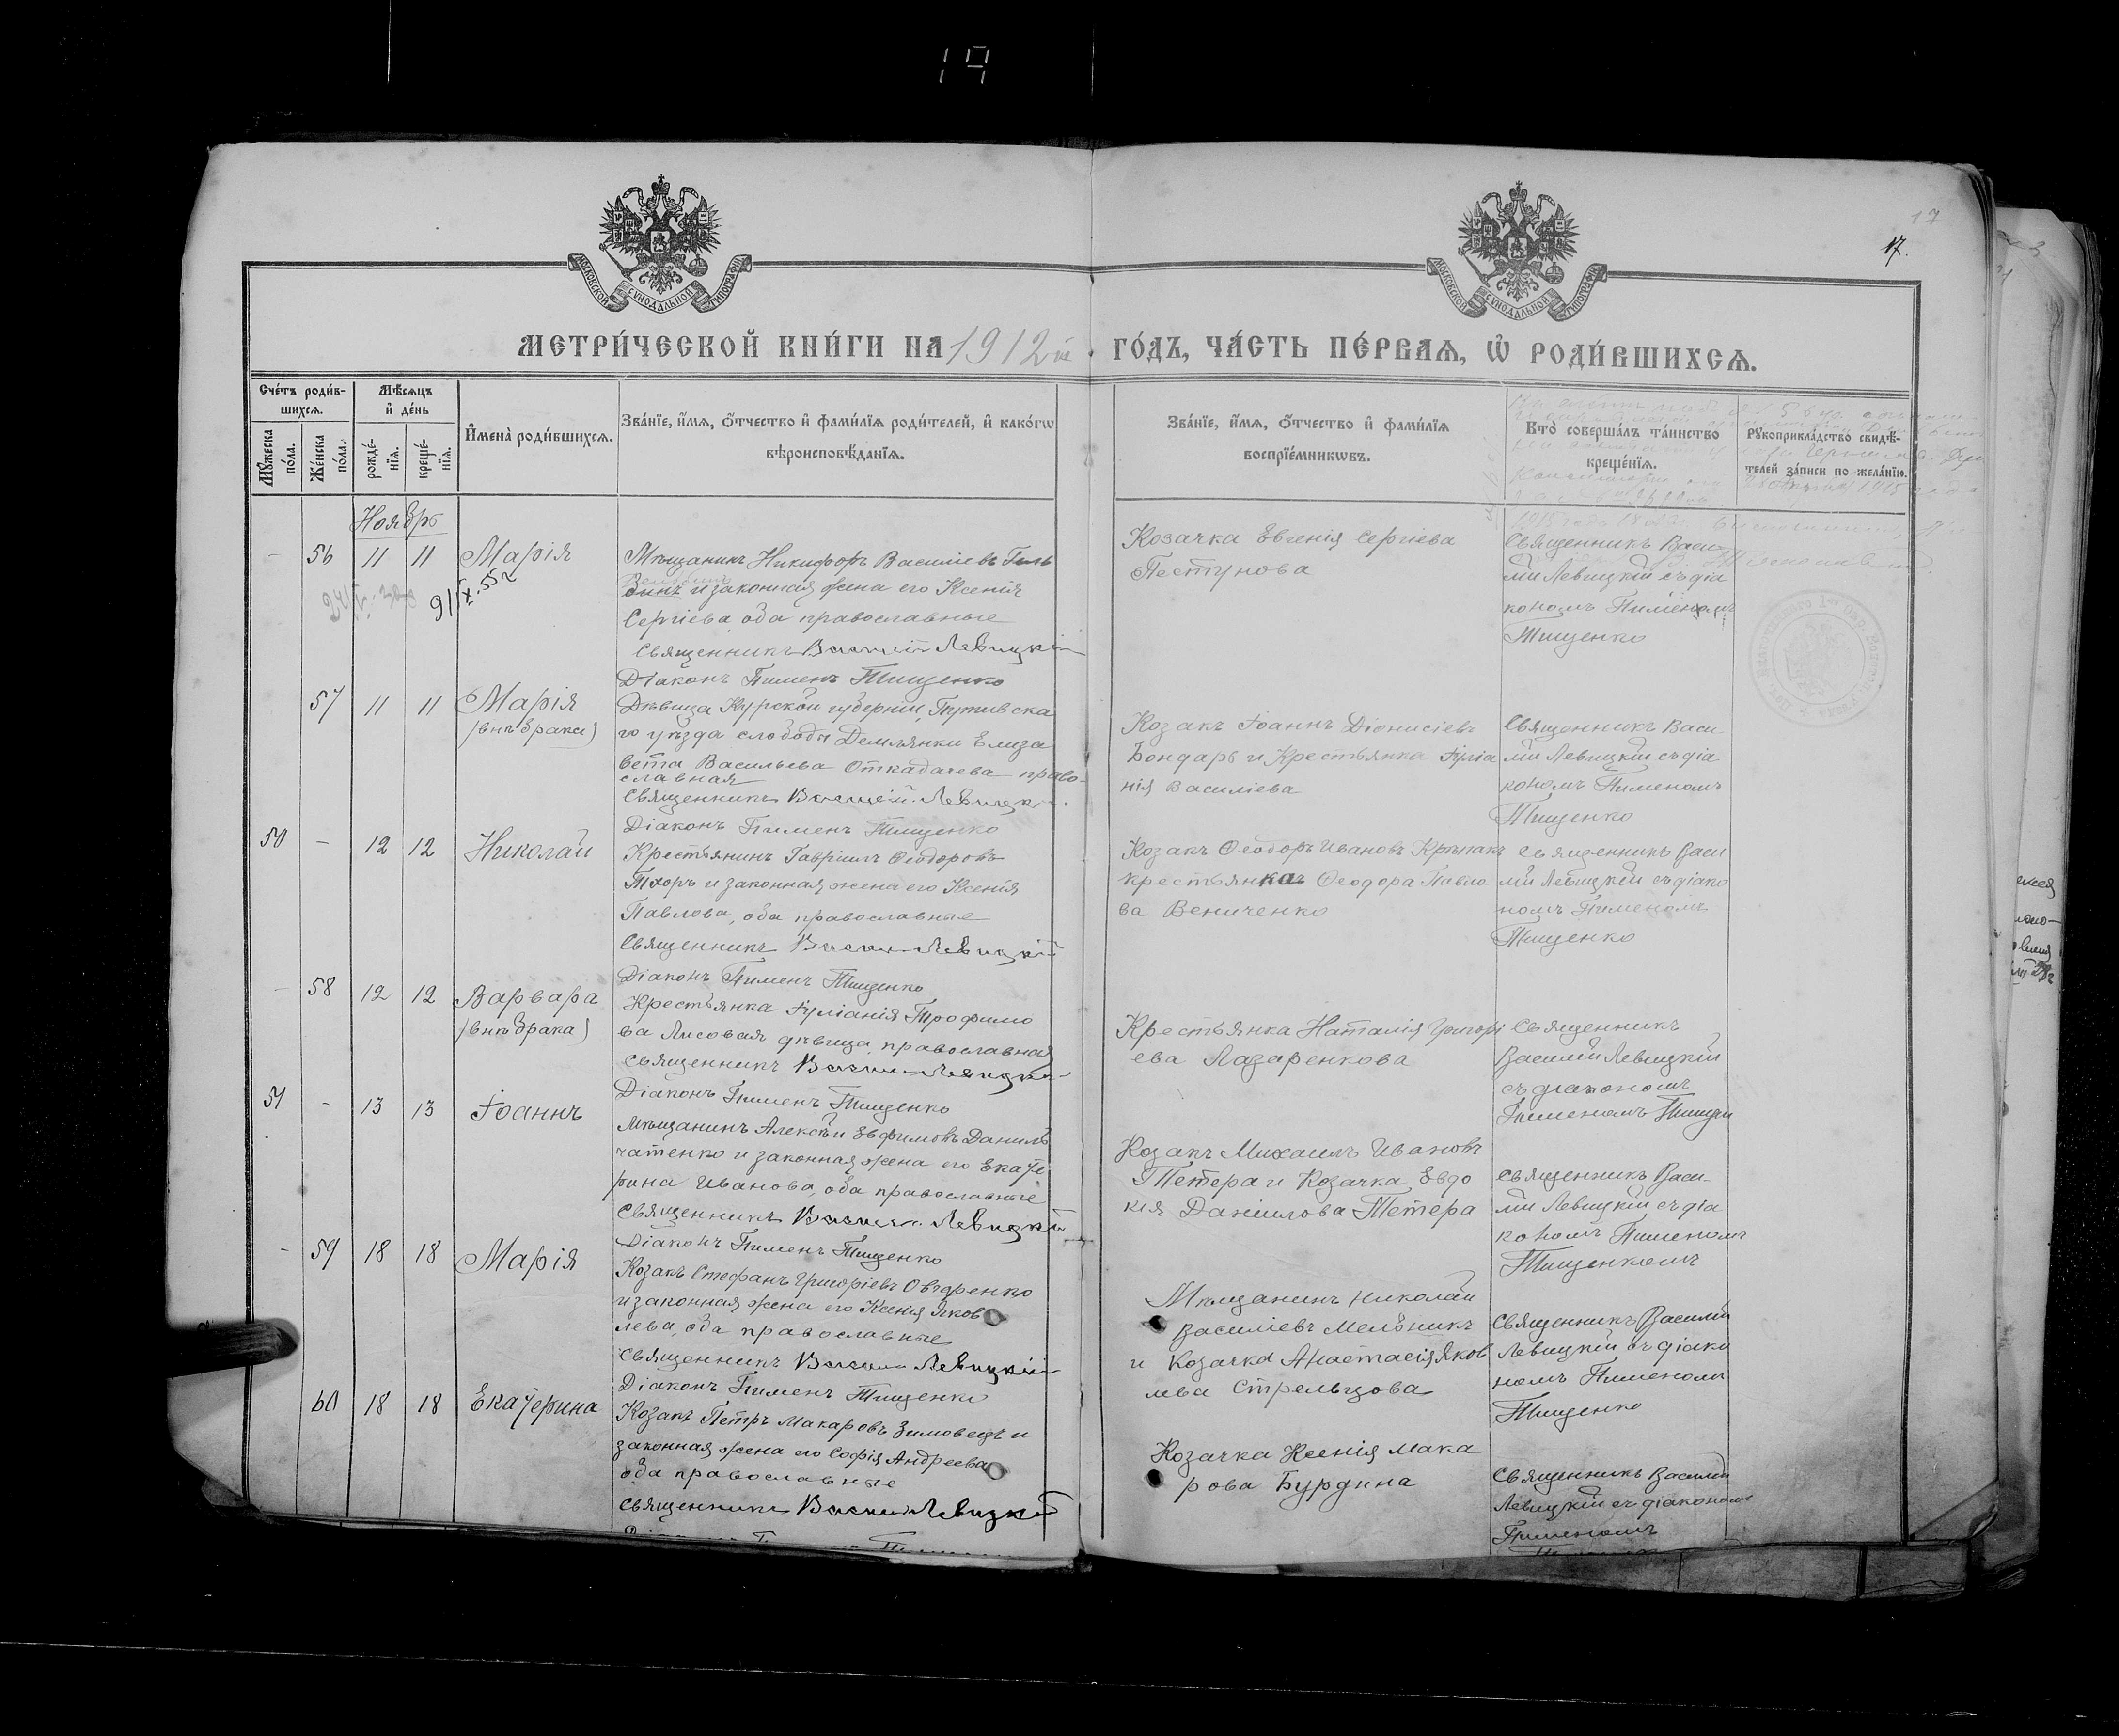 19
17
17.
МОСКОВСКОЙ СѴНОДАЛЬНОЙ ТИПОГРАФІИ
МОСКОВСКОЙ СѴНОДАЛЬНОЙ ТИПОГРАФІИ
МЕТРИ́ЧЕСКОЙ КНИ́ГИ НА 1912й ГО́ДЪ, ЧА́СТЬ ПЕ́РВАѦ, Ѡ҆ РОДИ́ВШИХСѦ.
Сче́тъ роди́в-
шихсѧ.
Мꙋ́жеска
по́ла.
Же́нска
по́ла.
Мѣ́сѧцъ
и҆ де́нь
рожде́-
нїѧ.
креще́-
нїѧ.
И҆мена̀ роди́вшихсѧ.
Зва́нїе, и҆́мѧ, ѻ҆́тчество и҆ фами́лїѧ роди́телей, и҆ како́гѡ
вѣроисповѣ́данїѧ.
Зва́нїе, и҆́мѧ, ѻ҆́тчество и҆ фами́лїѧ
воспрїе́мникѡвъ.
Кто̀ соверша́лъ та́инство
креще́нїѧ.
Рꙋкоприкла́дство свидѣ́-
телей за́писи по жела́нїю.
Ноябрь
- 56 11 11 Марія
Мѣщанинъ Никифоръ Василіевъ Гиль
и законная жена его Ксенія
Сергіева, оба православные
Священникъ Василій Левицкій
Діаконъ Пименъ Тищенко
Козачка Евгенія Сергіева
Пестунова
Священникъ Васи-
лій Левицкій съ діа
кономъ Пименомъ
Тищенко
57 11 11 Марія
(внѣ брака)
Дѣвица Курской губерніи, Путивска
го уѣзда слободы Демлянки Елиза
вета Васильева Откадачева право-
славная
Священникъ Василій Левицкій
Діаконъ Пименъ Тищенко
Козакъ Іоаннъ Діонисіевъ
Бондарь и Крестьянка Іуліа
нія Василіева
Священникъ Васи-
лій Левицкій съ діа
кономъ Пименомъ
Тищенко
50 - 12 12 Николай
Крестьянинъ Гавріилъ Ѳеодоровъ
Тхоръ и законная жена его Ксенія
Павлова, оба православные
Священникъ Василій Левицкій
Діаконъ Пименъ Тищенко
Козакъ Ѳеодоръ Ивановъ
крестьянка Ѳеодора Павло
ва Вениченко
Священникъ Васи
лій Левицкій съ діако
номъ Пименомъ
Тищенко
- 58 12 12 Варвара
(внѣ брака)
Крестьянка Іуліанія Трофимо
ва Лисовая дѣвица, православная
Священникъ Василій Левицкій
Діаконъ Пименъ Тищенко
Крестьянка Наталія Григорі
ева Лазаренкова
Священникъ
Василій Левицкій
съ діакономъ
Пименомъ Тищен
51 - 13 13 Іоаннъ
Мѣщанинъ Алексѣй Евфимовъ Даниль
ченко и законная жена его Екате
рина Иванова, оба православные
Священникъ Василій Левицкій
Діаконъ Пименъ Тищенко
Козакъ Михаилъ Ивановъ
Тетера и Козачка Евдо
кія Даніилова Тетера
Священникъ Васи-
лій Левицкій съ діа
кономъ Пименомъ
Тищенкомъ
- 59 18 18 Марія
Козакъ Стефанъ Григоріевъ
и законная жена его Ксенія Яков
лева, оба православные
Священникъ Василій Левицкій
Діаконъ Пименъ Тищенко
Мѣщанинъ Николай
Василіевъ Мельникъ
и Козачка Анастасія Яков
лева Стрельцова
Священникъ Василій
Левицкій съ діако
номъ Пименомъ
Тищенко
60 18 18 Екатерина
Козакъ Петръ Макаровъ Зимовецъ и
законная жена его Софія Андреева
оба православные
Священникъ Василій Левицкій
Козачка Ксенія Мака
рова Бурдина
Священникъ Василій
Левицкій съ діакономъ
Пименомъ